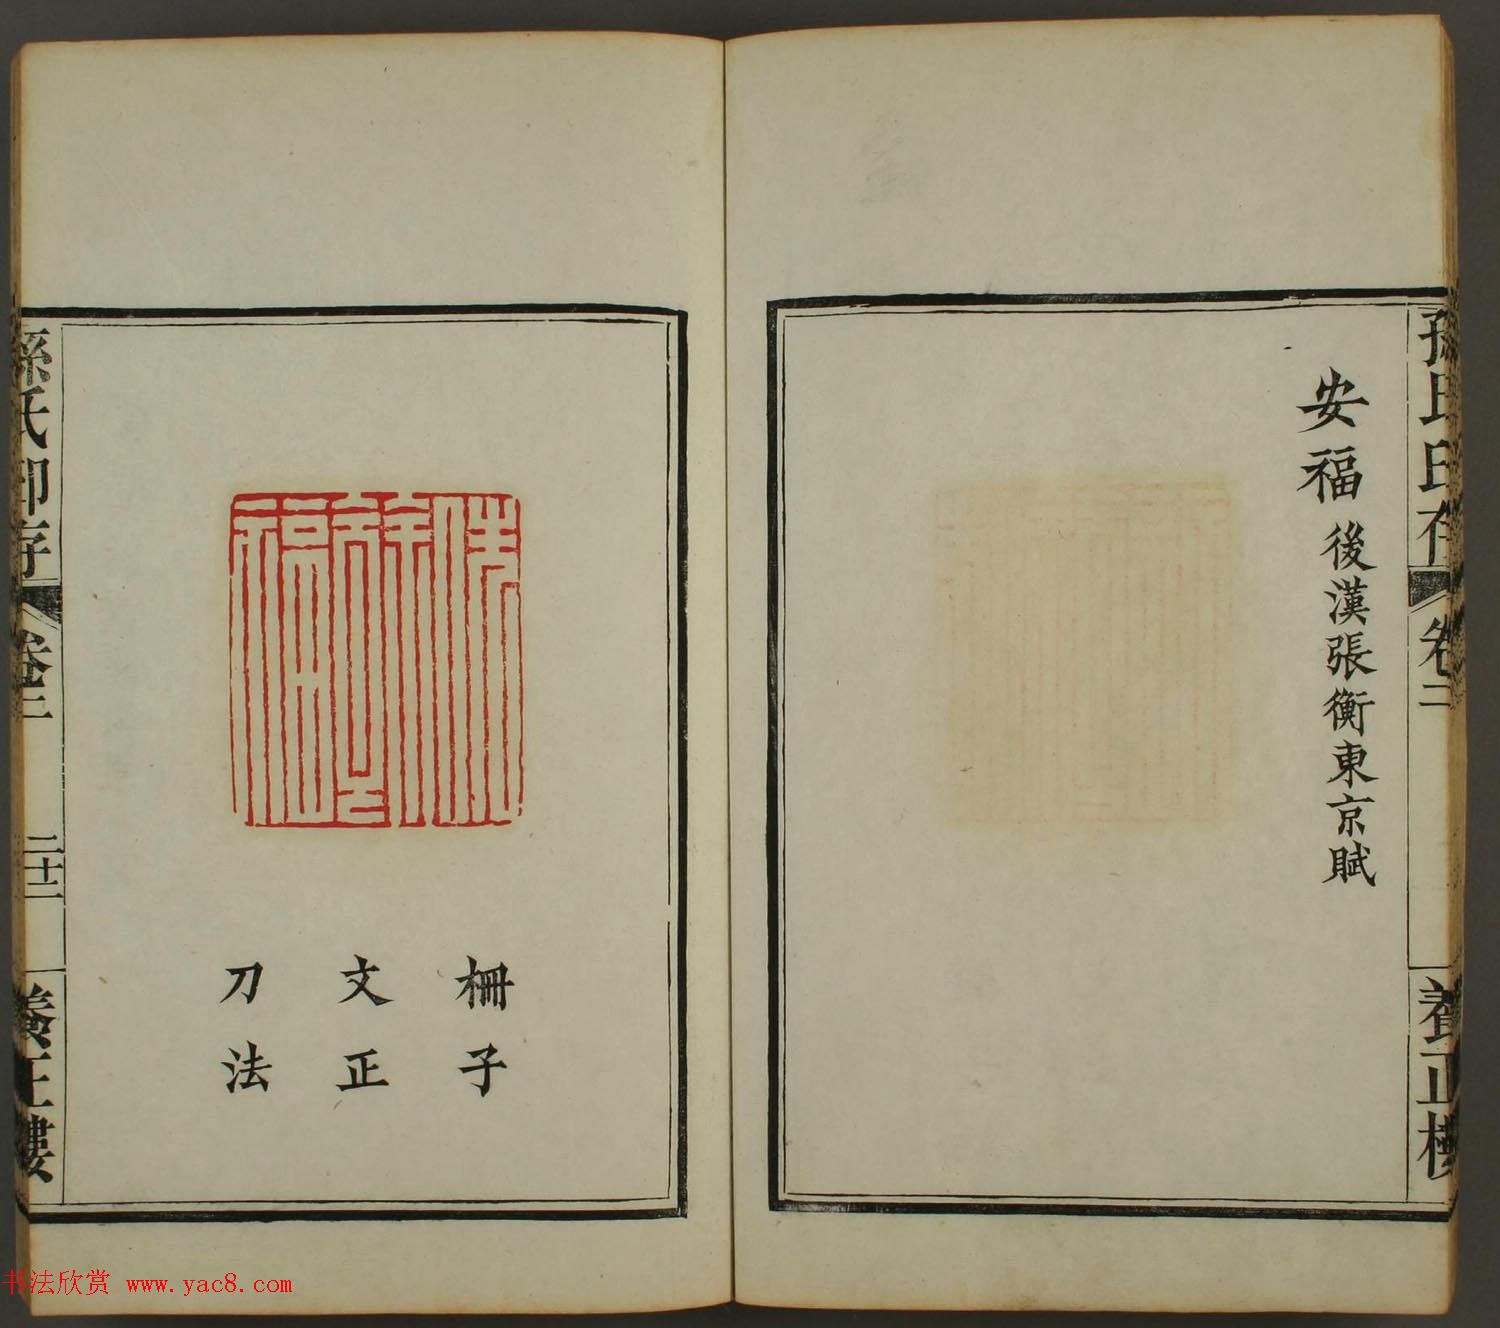 孫氏印存
卷二
養正樓
安福 後漢張衡東京賦
柵子
文正
刀法
孫氏印存
卷二
二十二
養正樓
书法欣赏 www.yac8.com